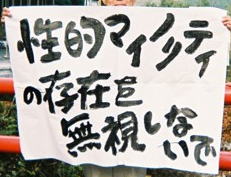 性的マイノリティ
の存在を
無視しないで